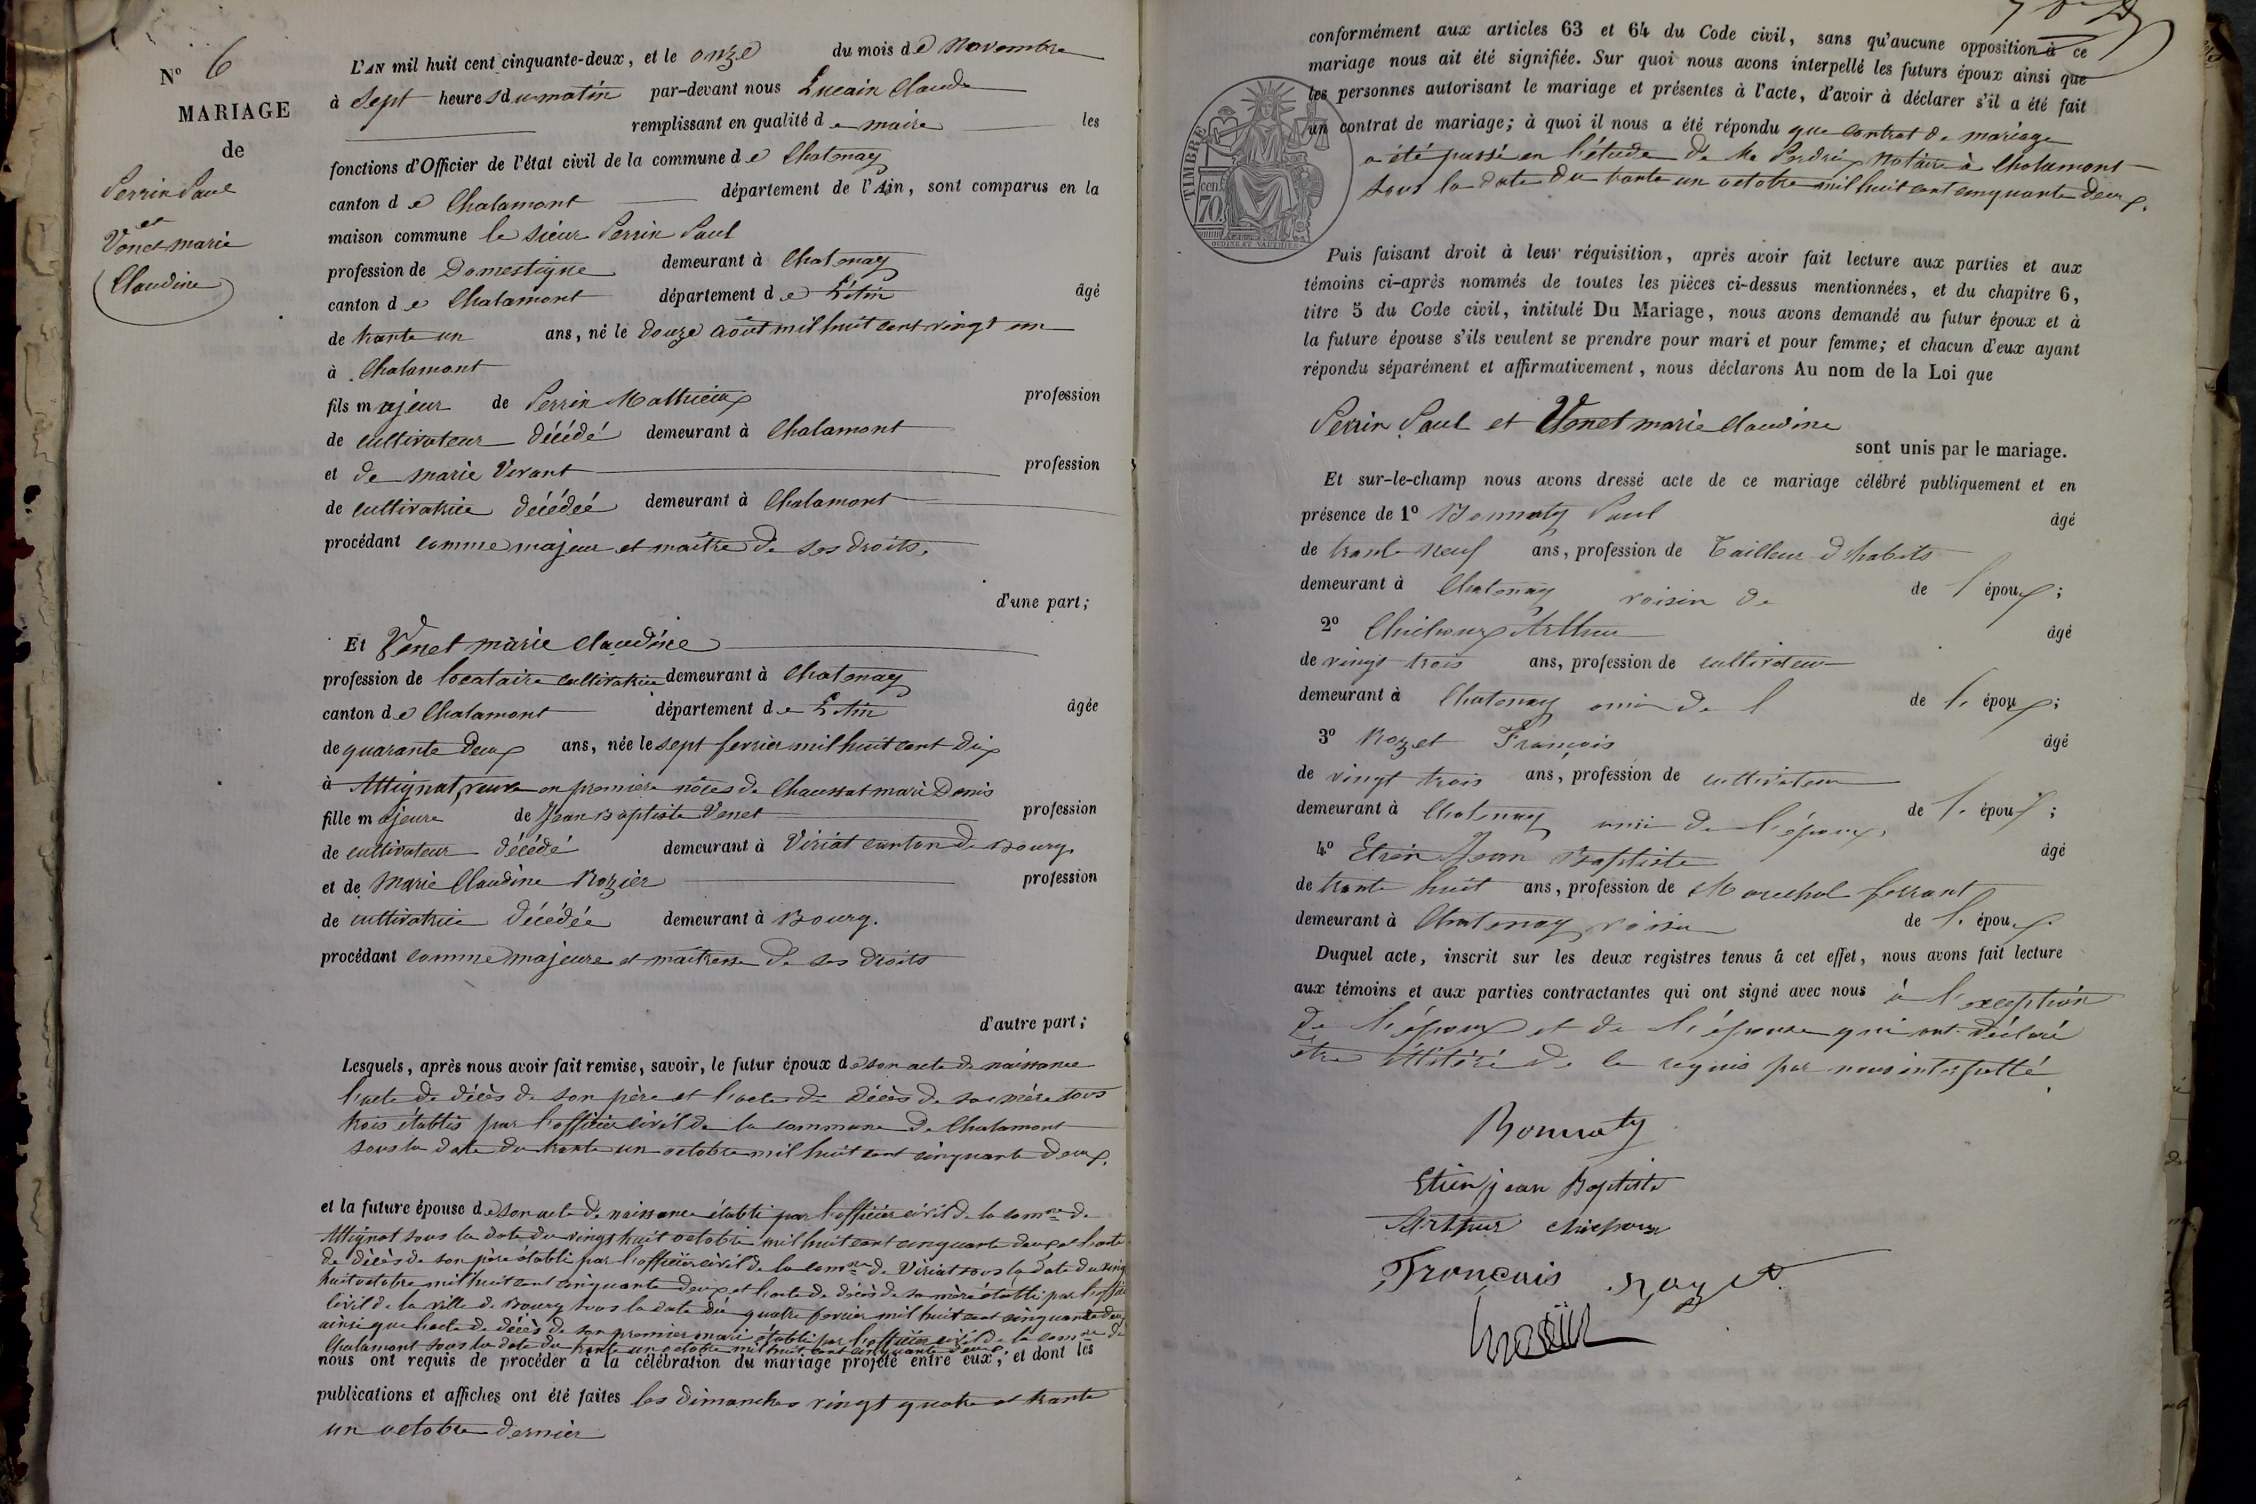 N° 6
MARIAGE
de
Perrin Paul
et
Venet marie
Claudine
L'AN mil huit cent cinquante-deux, et le onze du mois de Novembre
à sept heures du matin par-devant nous Lucain Claude
remplissant en qualité de maire les
fonctions d'Officier de l'état civil de la commune de Chatenay
canton de Chalamont département de l'Ain, sont comparus en la
maison commune le sieur Perrin Paul
profession de Domestique demeurant à Chatenay
canton de Chalamont département de L'Ain âgé
de trente un ans, né le douze août mil huit cent vingt un
à Chalamont
fils majeur de Perrin Mathieux profession
de cultivateur décédé demeurant à Chalamont
et de marie Vivant profession
de cultivatrice décédeé demeurant à Chalamont
procédant comme majeur et maitre de ses droits.
d'une part;
Et Venet marie Claudine
profession de locataire cultivatrice demeurant à Chatenay
canton de Chalamont département de L'Ain âgée
de quarante deux ans, née le sept fevrier mil huit cent dix
à Attignat, veuve en premiere nôces de Chaussat marie Denis
fille majeure de Jean Baptiste Venet profession
de cultivateur décédé demeurant à Viriat canton de Bourg.
et de Marie Claudine Rozier profession
de cultivatrice décédée demeurant à Bourg.
procédant comme majeure et maitresse de ses droits
d'autre part;
Lesquels, après nous avoir fait remise, savoir, le futur époux de son acte de naissance
l'acte de décès de son père et l'acte de décès de sa mère tous
trois établis par l'officier civil de la commune de Chalamont
sous la date du trente un octobre mil huit cent cinquante deux.
et la future épouse de son acte de naissance établi par l'officier civil de la comne de
Attignat sous la date du vingt huit octobre mil huit cent cinquante deux et l'acte
de décès de son père établi par l'officier civil de la comne de Viriat sous la date du vingt
huit octobre mil huit cent cinquante deux et l'acte de décès de sa mère établi par l'officier
civil de la ville de Bourg sous la date du quatre fevrier mil huit cent cinquante deux
ainsi que l'acte de décès de son premier mari établi par l'officier civil de la comne de
Chalamont sous la date du trente un octobre mil huit cent cinquante deux
nous ont requis de procéder à la célébration du mariage projeté entre eux, et dont les
publications et affiches ont été faites les dimanches vingt quatre et trente
un octobre dernier
conformément aux articles 63 et 64 du Code civil, sans qu'aucune opposition à ce
mariage nous ait été signifiée. Sur quoi nous avons interpellé les futurs époux ainsi que
les personnes autorisant le mariage et présentes à l'acte, d'avoir à déclarer s'il a été fait
un contrat de mariage; à quoi il nous a été répondu que contrat de mariage
a été passé en l'étude de Me Perdrix Notaire à Chalamont
sous la date du trente un octobre mil huit cent cinquante deux.
TIMBRE
70
Puis faisant droit à leur réquisition, après avoir fait lecture aux parties et aux
témoins ci-après nommés de toutes les pièces ci-dessus mentionnées, et du chapitre 6,
titre 5 du Code civil, intitulé Du Mariage, nous avons demandé au futur époux et à
la future épouse s'ils veulent se prendre pour mari et pour femme; et chacun d'eux ayant
répondu séparément et affirmativement, nous déclarons Au nom de la Loi que
Perrin Paul et Venet marie Claudine
sont unis par le mariage.
Et sur-le-champ nous avons dressé acte de ce mariage célébré publiquement et en
présence de 1° Bonnaty Paul âgé
de trente neuf ans, profession de Tailleur d'habits
demeurant à Chatenay voisin de de l'époux;
2° Chichoux Arthur âgé
de vingt trois ans, profession de cultivateur
demeurant à Chatenay ami de l de l'époux;
3° Rozet François âgé
de vingt trois ans, profession de cultivateur
demeurant à Chatenay ami de l'époux, de l'époux;
4° Etien Jean Baptiste âgé
de trente huit ans, profession de Marechal ferrant
demeurant à Chatenay voisin de l'époux.
Duquel acte, inscrit sur les deux registres tenus à cet effet, nous avons fait lecture
aux témoins et aux parties contractantes qui ont signé avec nous à l'exception
de l'époux et de l'épouse qui ont déclaré
être illitéré de le requis par nous interpellé
Bonnaty
Etien jean Baptiste
Arthur
François Rozet